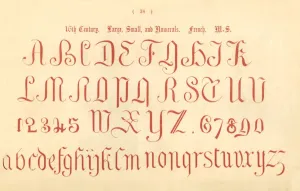 ( 34 )
16th Century. Large, Small, and Numerals. French. M.S.
A B C D E F G H I K
L M N O P Q R S T U V
1 2 3 4 5 W X Y Z . 6 7 8 9 0
a b c d e f g h ij k l m n o p q r s t u v w x y z